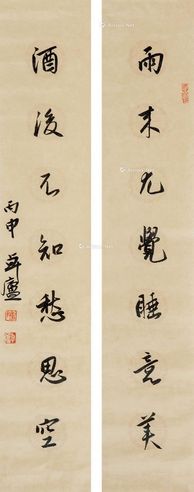 雨来尤覺睡意美
酒後不知愁思空
丙申 年廬